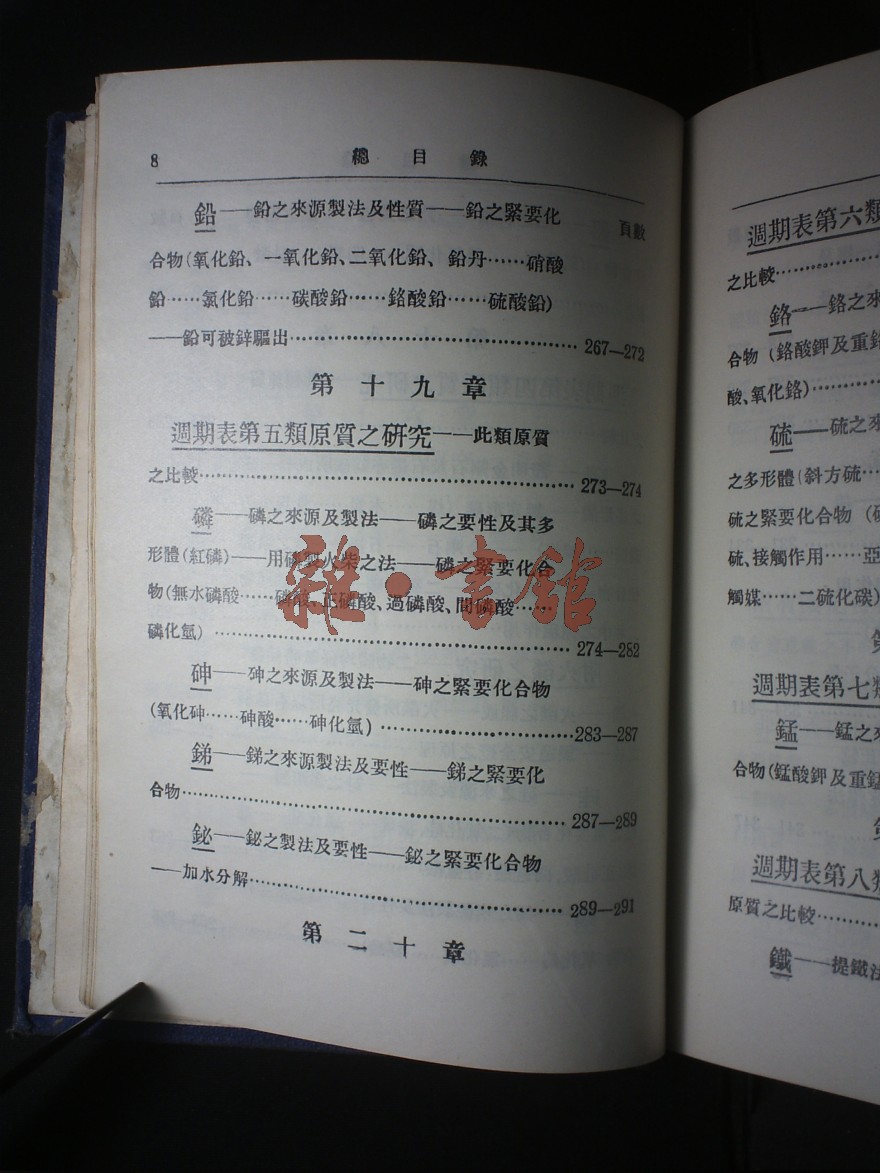 8 總目錄
頁數
鉛——鉛之來源製法及性質——鉛之緊要化
合物(氧化鉛、一氧化鉛、二氧化鉛、鉛丹……硝酸
鉛……氯化鉛……碳酸鉛……鉻酸鉛……硫酸鉛)
——鉛可被鋅驅出……267—272
第十九章
週期表第五類原質之研究——此類原質
之比較……273—274
磷——磷之來源及製法——磷之要性及其多
形體(紅磷)——用磷製火柴之法——磷之緊要化合
物(無水磷酸……磷酸、正磷酸、過磷酸、間磷酸……
磷化氫)……274—282
砷——砷之來源及製法——砷之緊要化合物
(氧化砷……砷酸……砷化氫)……283—287
銻——銻之來源製法及要性——銻之緊要化
合物……287—289
鉍——鉍之製法及要性——鉍之緊要化合物
——加水分解……289—291
第二十章
雜·書館
週期表第六類
之比較……
鉻——鉻之來
合物(鉻酸鉀及重鉻
酸、氧化鉻)……
硫——硫之來
之多形體(斜方硫…
硫之緊要化合物(
硫、接觸作用……亞
觸媒……二硫化碳)
第
週期表第七類
錳——錳之來
合物(錳酸鉀及重錳
第
週期表第八類
原質之比較……
鐵——提鐵法